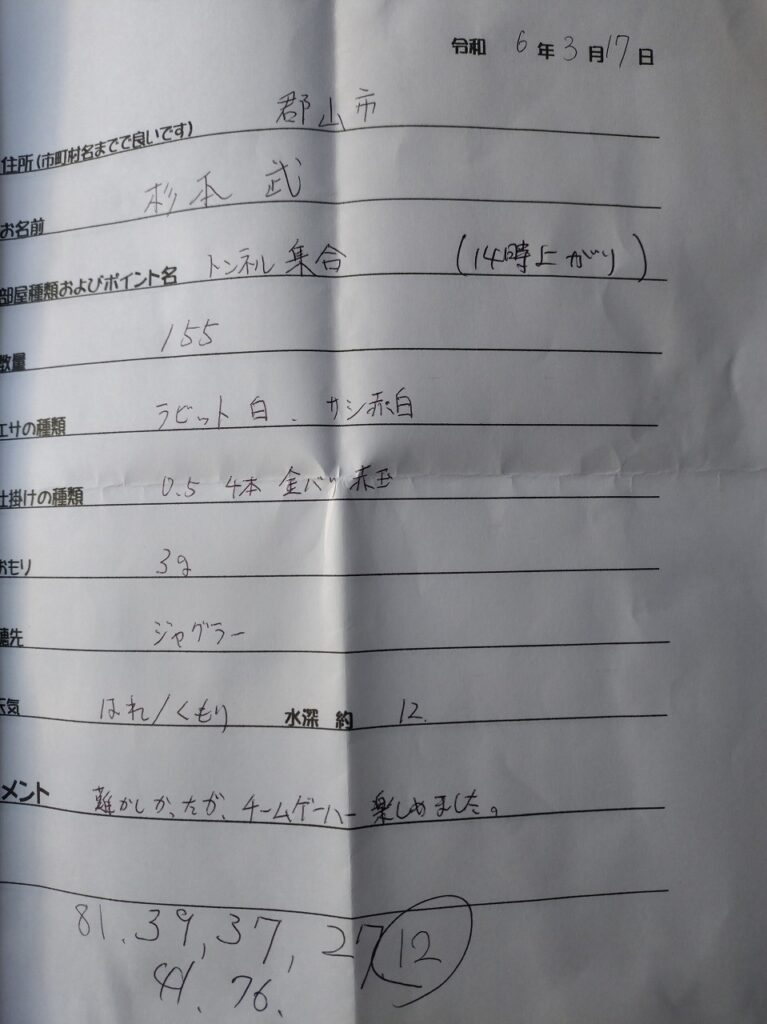 令和 6 年 3 月 17 日
住所(市町村名までで良いです) 郡山市
お名前 杉本 武
部屋種類およびポイント名 トンネル 集合 (14時上がり)
数量 155
エサの種類 ラビット 白 . サシ赤白
仕掛けの種類 0.5 4本 金バリ 赤玉
おもり 3g
穂先 ジャグラー
天気 はれ/くもり 水深 約 12.
メント 難かしかったが、チームゲーハー 楽しめました。
81. 39, 37, 27, 12
41. 76.